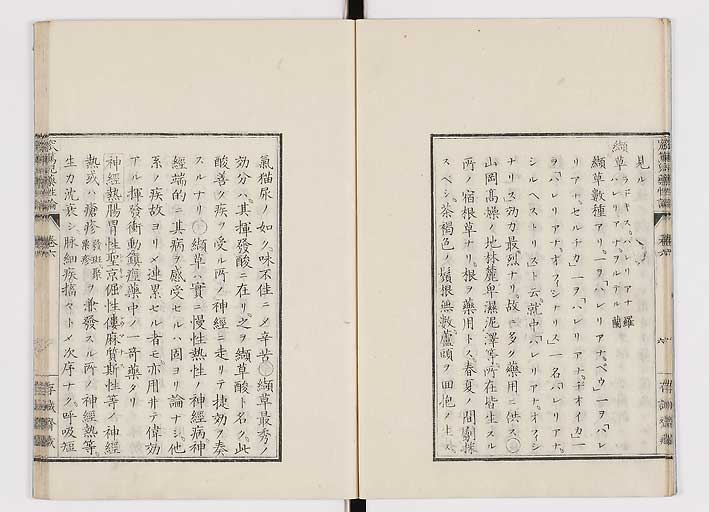 見ル
纈草 ラドキス、バレリアナ 羅 バルデル 蘭
纈草數種アリ一ヲ「バレリアナ、ペウ」一ヲ「バレ
リアナ、セルチカ」一ヲ「バレリアナ、ヂオイカ」一
ヲ「バレリアナ、オフィシナリス」一名「バレリアナ、
シルヘストリスト云就中「バレリアナ、オフィシ
ナリス功力最烈ナリ故ニ多ク藥用ニ供ス
山岡高燥ノ地林麓卑濕泥澤等所在皆生スル
所ノ宿根草ナリ根ヲ藥用トス春夏ノ間剔採
スベシ茶褐色ノ鬚根無數蘆頭ヲ回抱ノ生ス
氣猫尿ノ如ク味不佳ニメ辛苦纈草最秀ノ
効分ハ其揮發酸ニ在リ之ヲ纈草酸ト名ク此
酸善ク疾ヲ受ル所ノ神經ニ走リテ捷効ヲ奏
スルナリ纈草ハ實ニ慢性熱性ノ神經病神
經端的ニ其病ヲ感受セルハ固ヨリ論ナシ他
系ノ疾故ヨリメ連累セル者モ亦用井テ偉効
アル揮發衝動鎭痙藥中ノ一竒藥タリ
神經熱腸胃性聖京倔性僂麻質斯性等ノ神經
熱或ハ瘡疹ヲ兼發スル所ノ神經熱等
生力沈衰シ脉細疾搐々トメ次序ナク呼吸短
卷六